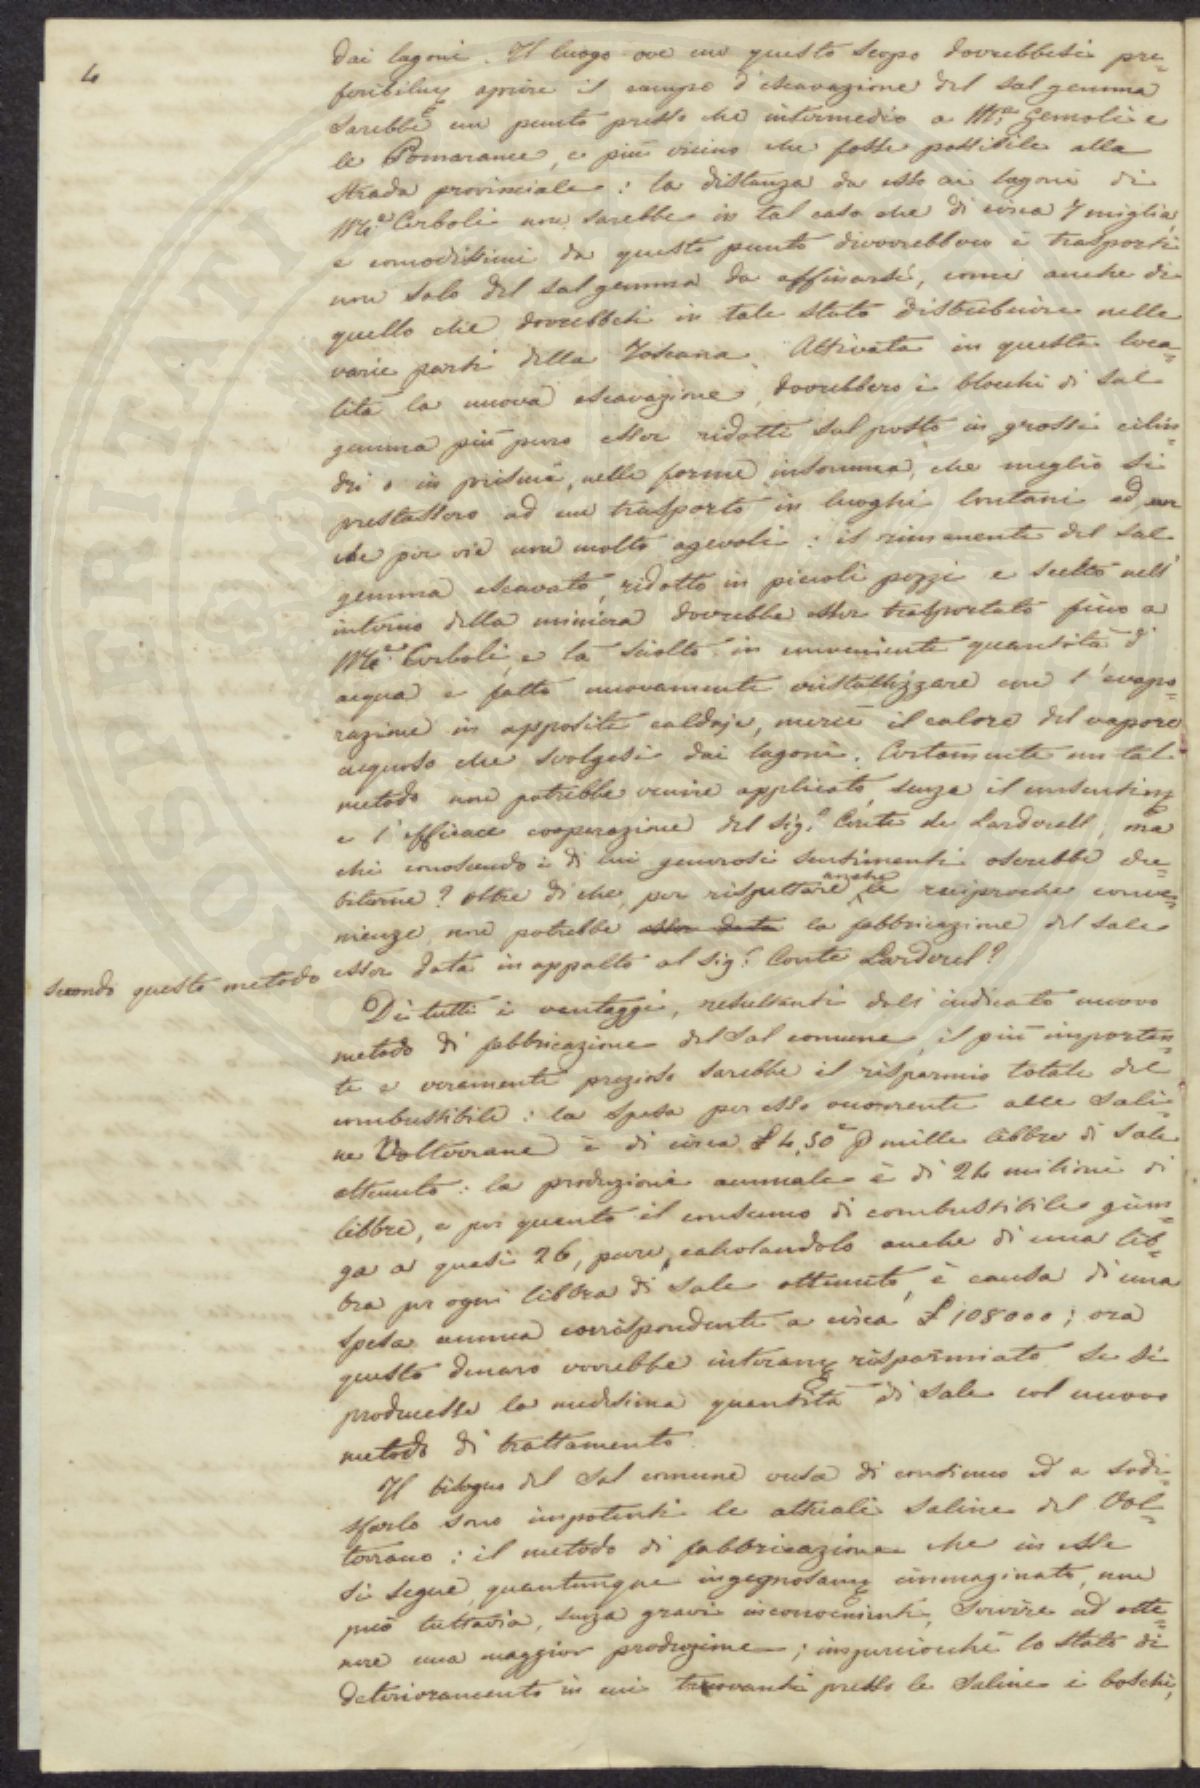 4
dai lagoni. Il luogo ove con questo scopo dovrebbesi pre=
feribilme aprire il campo d'escavazione del sal gemma
sarebbe un punto presso che intermedio a Mte Gemoli e
le Pomarance, e più vicino che fosse possibile alla
strada provinciale: la distanza da esso ai lagoni di
Mte Cerboli non sarebbe in tal caso che di circa 7 miglia,
e comodissimi da questo punto diverrebbero i trasporti
non solo del sal gemma da affinarsi, come anche di
quello che dovrebbesi in tale stato distribuire nelle
varie parti della Toscana. Attivata in questa loca=
lità la nuova escavazione, dovrebbero i blocchi di sal
gemma più puro esser ridotti sul posto in grossi cilin=
dri o in prismi, nelle forme insomma, che meglio si
prestassero ad un trasporto in luoghi lontani ed an
che per vie non molto agevoli: il rimanente del sal
gemma escavato, ridotto in piccoli pezzi e scelto nell'
interno della miniera dovrebbe esser trasportato fino a
Mte Cerboli, e là sciolto in conveniente quantità d'
acqua e fatto nuovamente cristallizzare con l'evapo=
razione in apposite caldaje, mercè il calore del vapore
acquoso che svolgesi dai lagoni. Certamente un tal
metodo non potrebbe venire applicato senza il consentime
e l'efficace cooperazione del Sigr Conte de Larderell, ma
chi conoscendo i di lui generosi sentimenti oserebbe du=
bitarne? Oltre di che, per rispettare anche le reciproche conve=
nienze non potrebbe esser data la fabbricazione del sale
secondo questo metodo
esser data in appalto al Sigr Conte Larderel?
Di tutti i vantaggi, resultanti dall'indicato nuovo
metodo di fabbricazione del sal comune, il più importan=
te e veramente prezioso sarebbe il risparmio totale del
combustibile: la spesa per esso occorrente alle Sali=
ne Volterrane è di circa £ 4,50c p mille libbre di sale
ottenuto: la produzione annuale è di 24 milioni di
libbre, e per quanto il consumo di combustibile giun=
ga a quasi 26, pure, calcolandolo anche di una lib=
bra per ogni libbra di sale ottenuto, è causa di una
spesa annua corrispondente a circa £ 108000; ora
questo denaro verrebbe interame risparmiato se si
producesse la medesima quantità di sale col nuovo
metodo di trattamento.
Il bisogno del sal comune cresce di continuo ed a sodi=
sfarlo sono impotenti le attuali saline del Vol=
terrano: il metodo di fabbricazione che in esse
si segue, quantunque ingegnosame immaginato, non
può tuttavia, senza gravi inconvenienti, servire ad otte=
nere una maggior produzione; imperciocchè lo stato di
deterioramento in cui trovansi presso le Saline i boschi,